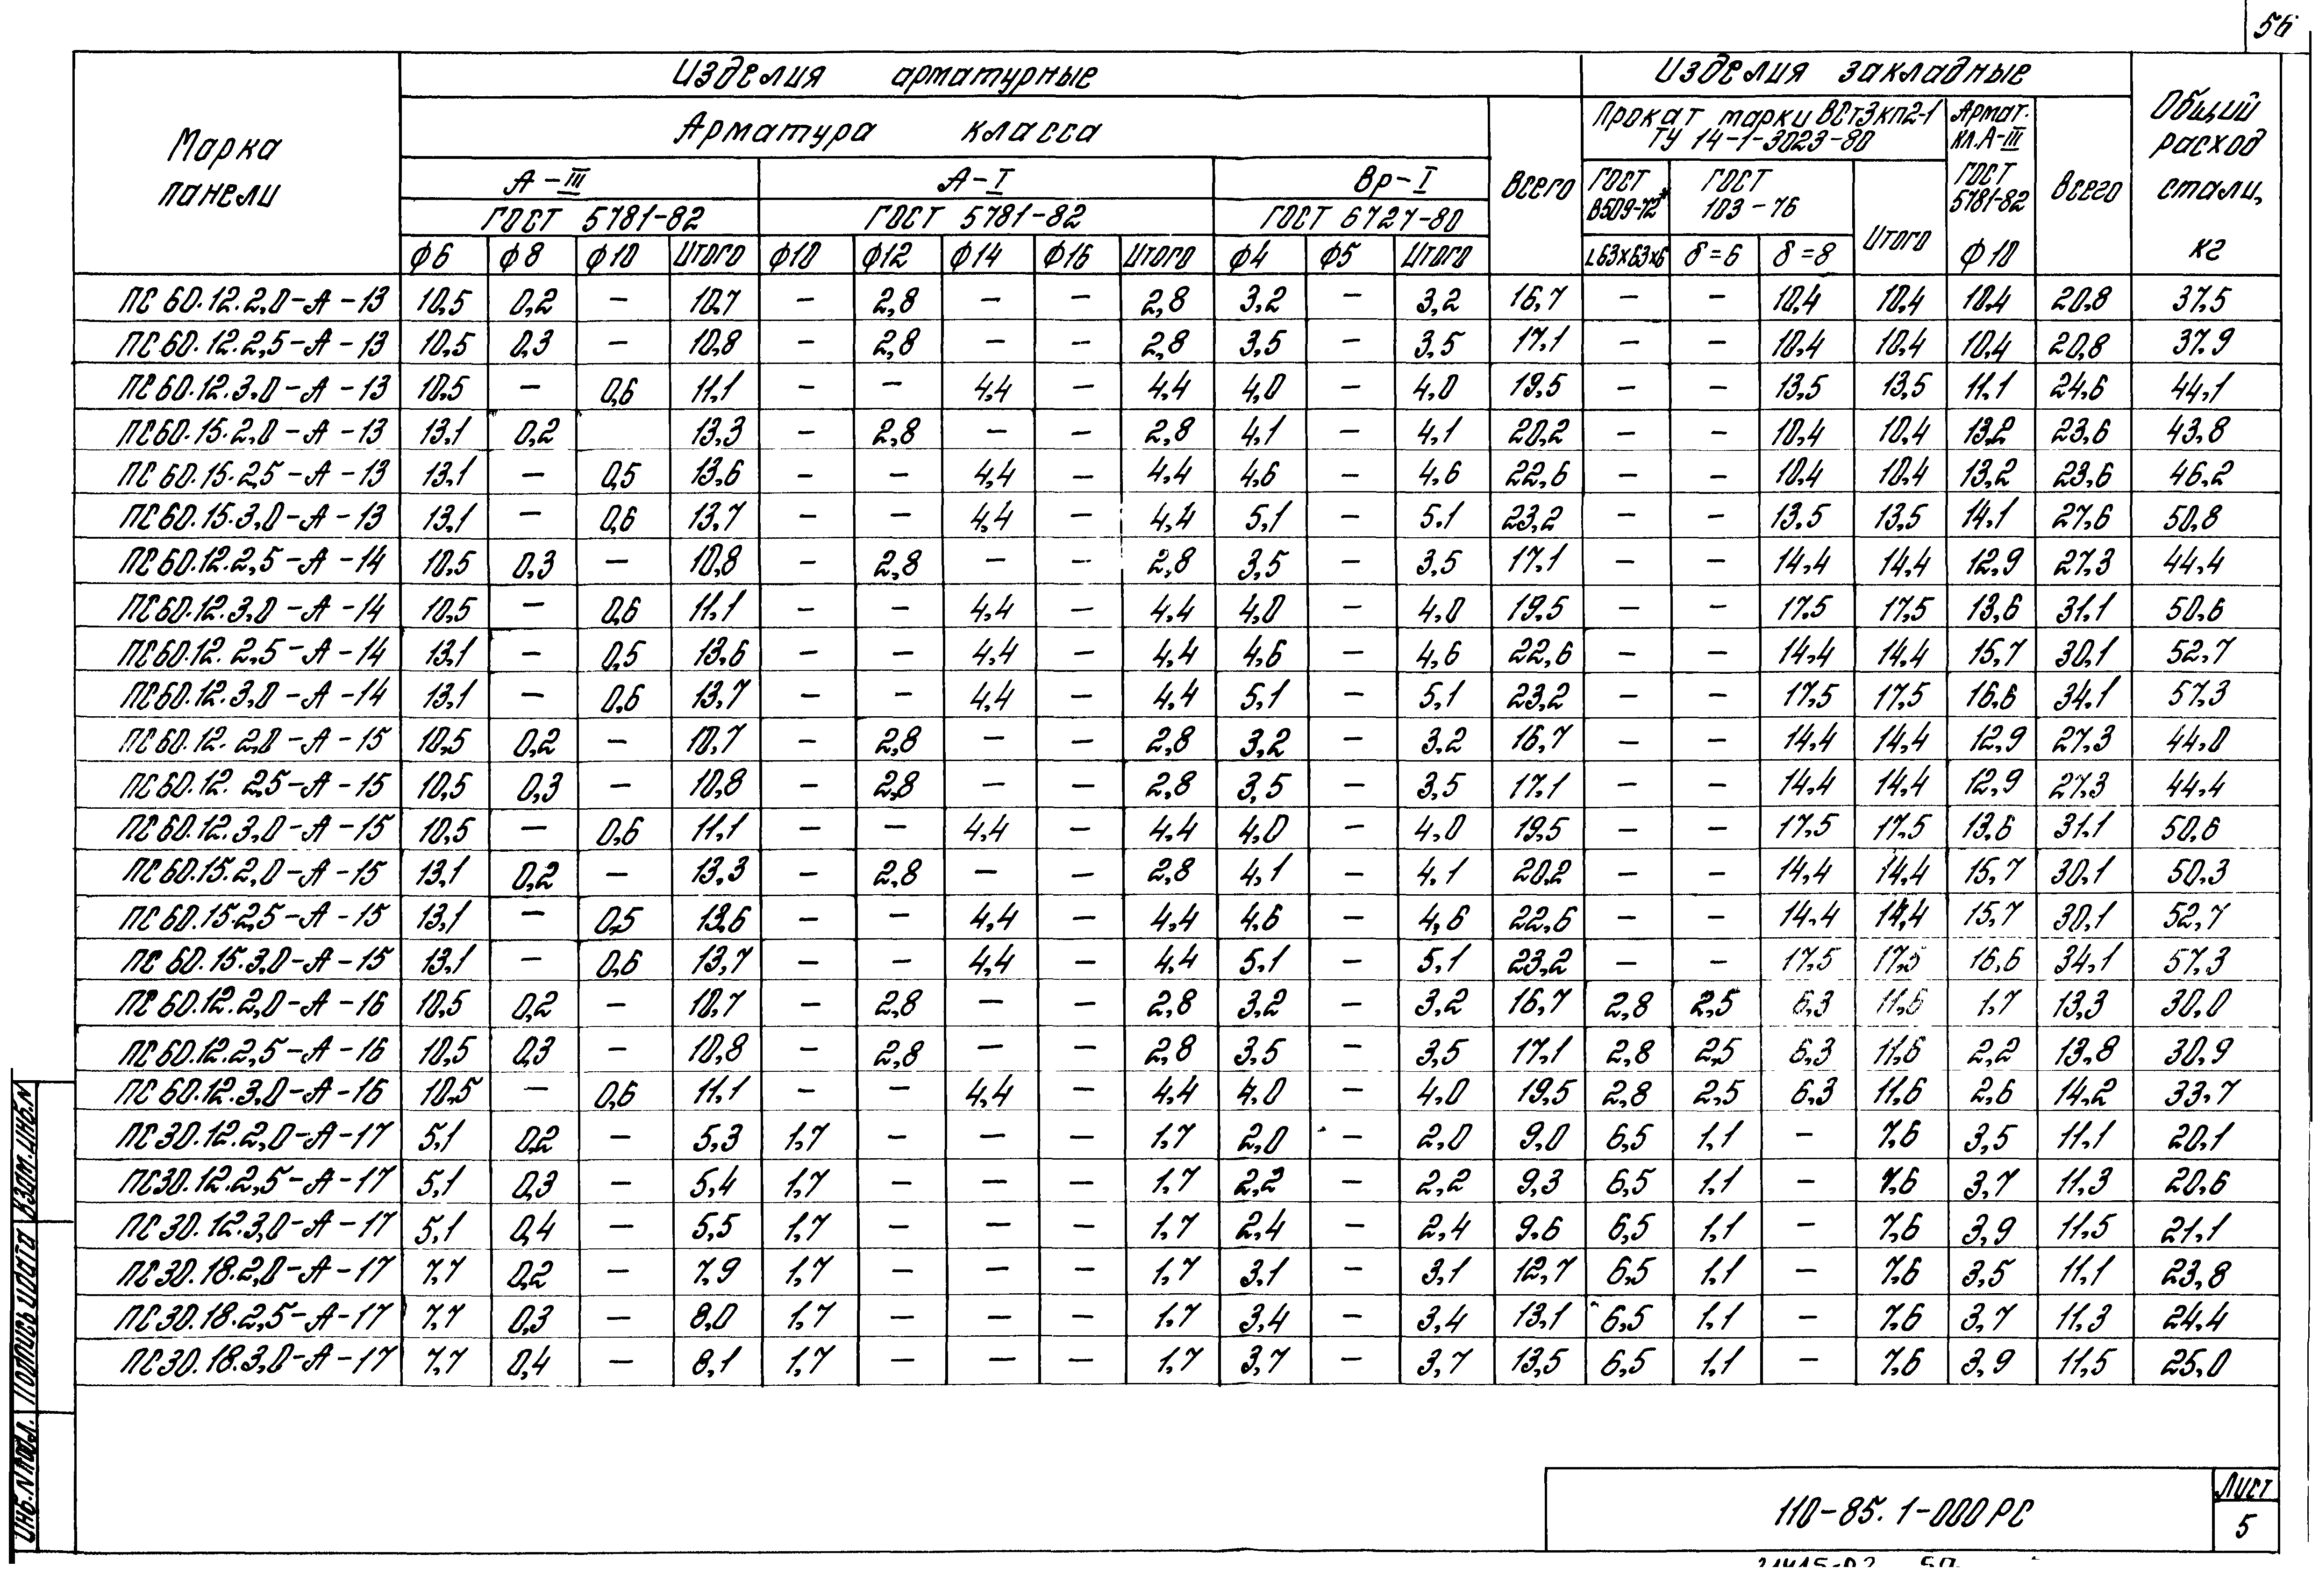 56
Изделия арматурные Изделия закладные
Марка панели
Арматура класса
Всего
Прокат марки ВСт3кп2-1
ТУ 14-1-3023-80
Армат. кл. А-III
Всего
Общий расход стали, кг
А-III А-I Вр-I
ГОСТ 8509-72*
ГОСТ 103-76
Итого
ГОСТ 5781-82
ГОСТ 5781-82 ГОСТ 5781-82 ГОСТ 6727-80
ф6 ф8 ф10 Итого ф10 ф12 ф14 ф16 Итого ф4 ф5 Итого L63x63x6 δ=6 δ=8 ф10
ПС 60.12.2,0-А-13 10,5 0,2 — 10,7 — 2,8 — — 2,8 3,2 — 3,2 16,7 — — 10,4 10,4 10,4 20,8 37,5
ПС60.12.2,5-А-13 10,5 0,3 — 10,8 — 2,8 — — 2,8 3,5 — 3,5 17,1 — — 10,4 10,4 10,4 20,8 37,9
ПС60.12.3,0-А-13 10,5 — 0,6 11,1 — — 4,4 — 4,4 4,0 — 4,0 19,5 — — 13,5 13,5 11,1 24,6 44,1
ПС60.15.2,0-А-13 13,1 0,2 13,3 — 2,8 — — 2,8 4,1 — 4,1 20,2 — — 10,4 10,4 13,2 23,6 43,8
ПС60.15.2,5-А-13 13,1 — 0,5 13,6 — — 4,4 — 4,4 4,6 — 4,6 22,6 — — 10,4 10,4 13,2 23,6 46,2
ПС60.15.3,0-А-13 13,1 — 0,6 13,7 — — 4,4 — 4,4 5,1 — 5,1 23,2 — — 13,5 13,5 14,1 27,6 50,8
ПС60.12.2,5-А-14 10,5 0,3 — 10,8 — 2,8 — — 2,8 3,5 — 3,5 17,1 — — 14,4 14,4 12,9 27,3 44,4
ПС60.12.3,0-А-14 10,5 — 0,6 11,1 — — 4,4 — 4,4 4,0 — 4,0 19,5 — — 17,5 17,5 13,6 31,1 50,6
ПС60.12.2,5-А-14 13,1 — 0,5 13,6 — — 4,4 — 4,4 4,6 — 4,6 22,6 — — 14,4 14,4 15,7 30,1 52,7
ПС60.12.3,0-А-14 13,1 — 0,6 13,7 — — 4,4 — 4,4 5,1 — 5,1 23,2 — — 17,5 17,5 16,6 34,1 57,3
ПС60.12.2,0-А-15 10,5 0,2 — 10,7 — 2,8 — — 2,8 3,2 — 3,2 16,7 — — 14,4 14,4 12,9 27,3 44,0
ПС60.12.2,5-А-15 10,5 0,3 — 10,8 — 2,8 — — 2,8 3,5 — 3,5 17,1 — — 14,4 14,4 12,9 27,3 44,4
ПС60.12.3,0-А-15 10,5 — 0,6 11,1 — — 4,4 — 4,4 4,0 — 4,0 19,5 — — 17,5 17,5 13,6 31,1 50,6
ПС60.15.2,0-А-15 13,1 0,2 — 13,3 — 2,8 — — 2,8 4,1 — 4,1 20,2 — — 14,4 14,4 15,7 30,1 50,3
ПС60.15.2,5-А-15 13,1 — 0,5 13,6 — — 4,4 — 4,4 4,6 — 4,6 22,6 — — 14,4 14,4 15,7 30,1 52,7
ПС60.15.3,0-А-15 13,1 — 0,6 13,7 — — 4,4 — 4,4 5,1 — 5,1 23,2 — — 17,5 17,5 16,6 34,1 57,3
ПС60.12.2,0-А-16 10,5 0,2 — 10,7 — 2,8 — — 2,8 3,2 — 3,2 16,7 2,8 2,5 6,3 11,6 1,7 13,3 30,0
ПС60.12.2,5-А-16 10,5 0,3 — 10,8 — 2,8 — — 2,8 3,5 — 3,5 17,1 2,8 2,5 6,3 11,6 2,2 13,8 30,9
ПС60.12.3,0-А-16 10,5 — 0,6 11,1 — — 4,4 — 4,4 4,0 — 4,0 19,5 2,8 2,5 6,3 11,6 2,6 14,2 33,7
ПС30.12.2,0-А-17 5,1 0,2 — 5,3 1,7 — — — 1,7 2,0 — 2,0 9,0 6,5 1,1 — 7,6 3,5 11,1 20,1
ПС30.12.2,5-А-17 5,1 0,3 — 5,4 1,7 — — — 1,7 2,2 — 2,2 9,3 6,5 1,1 — 7,6 3,7 11,3 20,6
ПС30.12.3,0-А-17 5,1 0,4 — 5,5 1,7 — — — 1,7 2,4 — 2,4 9,6 6,5 1,1 — 7,6 3,9 11,5 21,1
ПС30.18.2,0-А-17 7,7 0,2 — 7,9 1,7 — — — 1,7 3,1 — 3,1 12,7 6,5 1,1 — 7,6 3,5 11,1 23,8
ПС30.18.2,5-А-17 7,7 0,3 — 8,0 1,7 — — — 1,7 3,4 — 3,4 13,1 6,5 1,1 — 7,6 3,7 11,3 24,4
ПС30.18.3,0-А-17 7,7 0,4 — 8,1 1,7 — — — 1,7 3,7 — 3,7 13,5 6,5 1,1 — 7,6 3,9 11,5 25,0
Инв. N подл. Подпись и дата Взам. инв. N
110-85.1-000РС
Лист
5